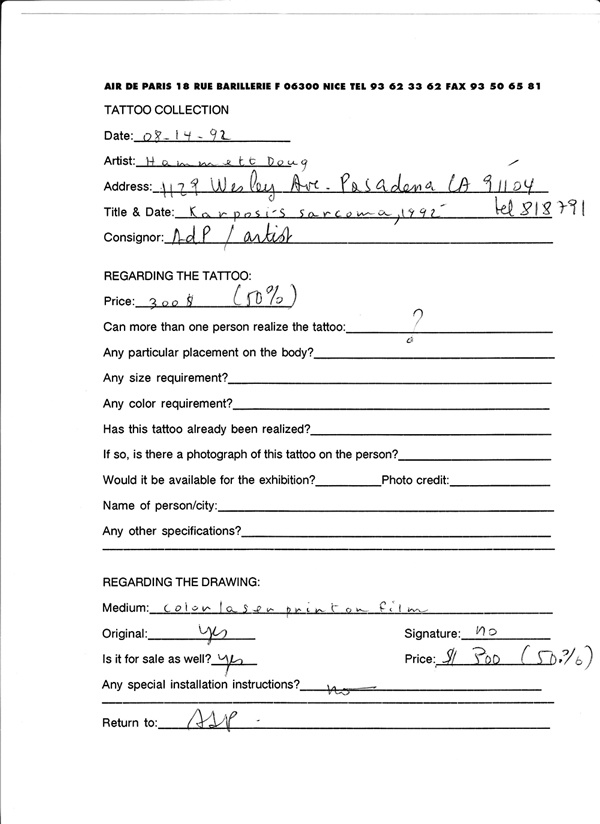 AIR DE PARIS 18 RUE BARILLERIE F 06300 NICE TEL 93 62 33 62 FAX 93 50 65 81
TATTOO COLLECTION
Date: 08-14-92
Artist: Hammett Doug
Address: 1129 Wesley Ave. Pasadena CA 91104
Title & Date: Karposi's sarcoma, 1992 tel 818 791
Consignor: AdP / artist
REGARDING THE TATTOO:
Price: 300 $ (50%)
Can more than one person realize the tattoo: ?
Any particular placement on the body?
Any size requirement?
Any color requirement?
Has this tattoo already been realized?
If so, is there a photograph of this tattoo on the person?
Would it be available for the exhibition? Photo credit:
Name of person/city:
Any other specifications?
REGARDING THE DRAWING:
Medium: color laser print on film
Original: yes Signature: no
Is it for sale as well? yes Price: $ 300 (50%)
Any special installation instructions? no
Return to: AdP -